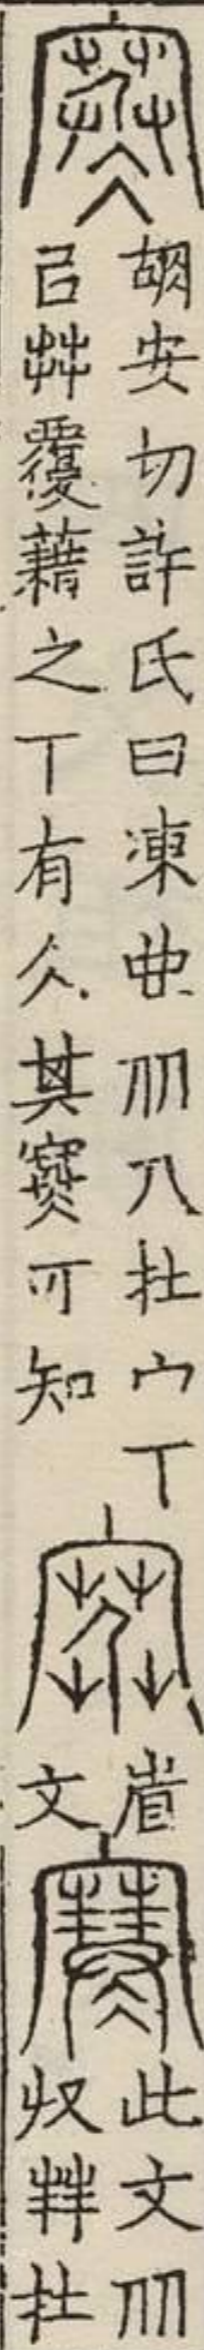 寒
胡安切許氏曰凍也从人在宀丅
㠯茻覆藉之丅有仌其寒可知
寒
省
文
寒
此文从
収茻在